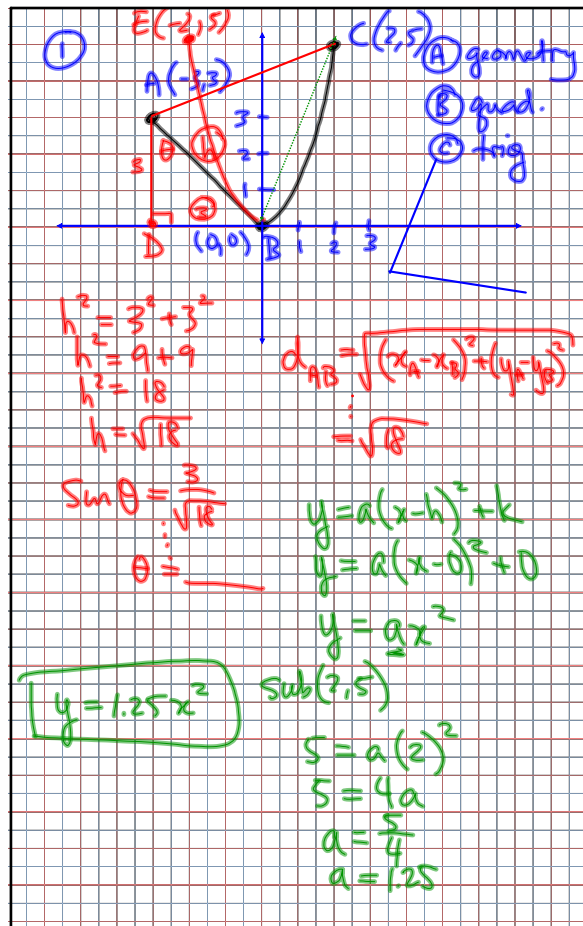 ① E(-2,5) C(2,5)
A(-3,3)
Ⓐ geometry
Ⓑ quad.
Ⓒ trig
θ h
3
2
1
3 ③
D (0,0) B 1 2 3
h² = 3² + 3²
h² = 9 + 9
h² = 18
h = √18
d_AB = √((x_A - x_B)² + (y_A - y_B)²)
⋮
= √18
sin θ = 3/√18
⋮
θ = ______
y = a(x-h)² + k
y = a(x-0)² + 0
y = ax²
sub(2,5)
y = 1.25x²
5 = a(2)²
5 = 4a
a = 5/4
a = 1.25